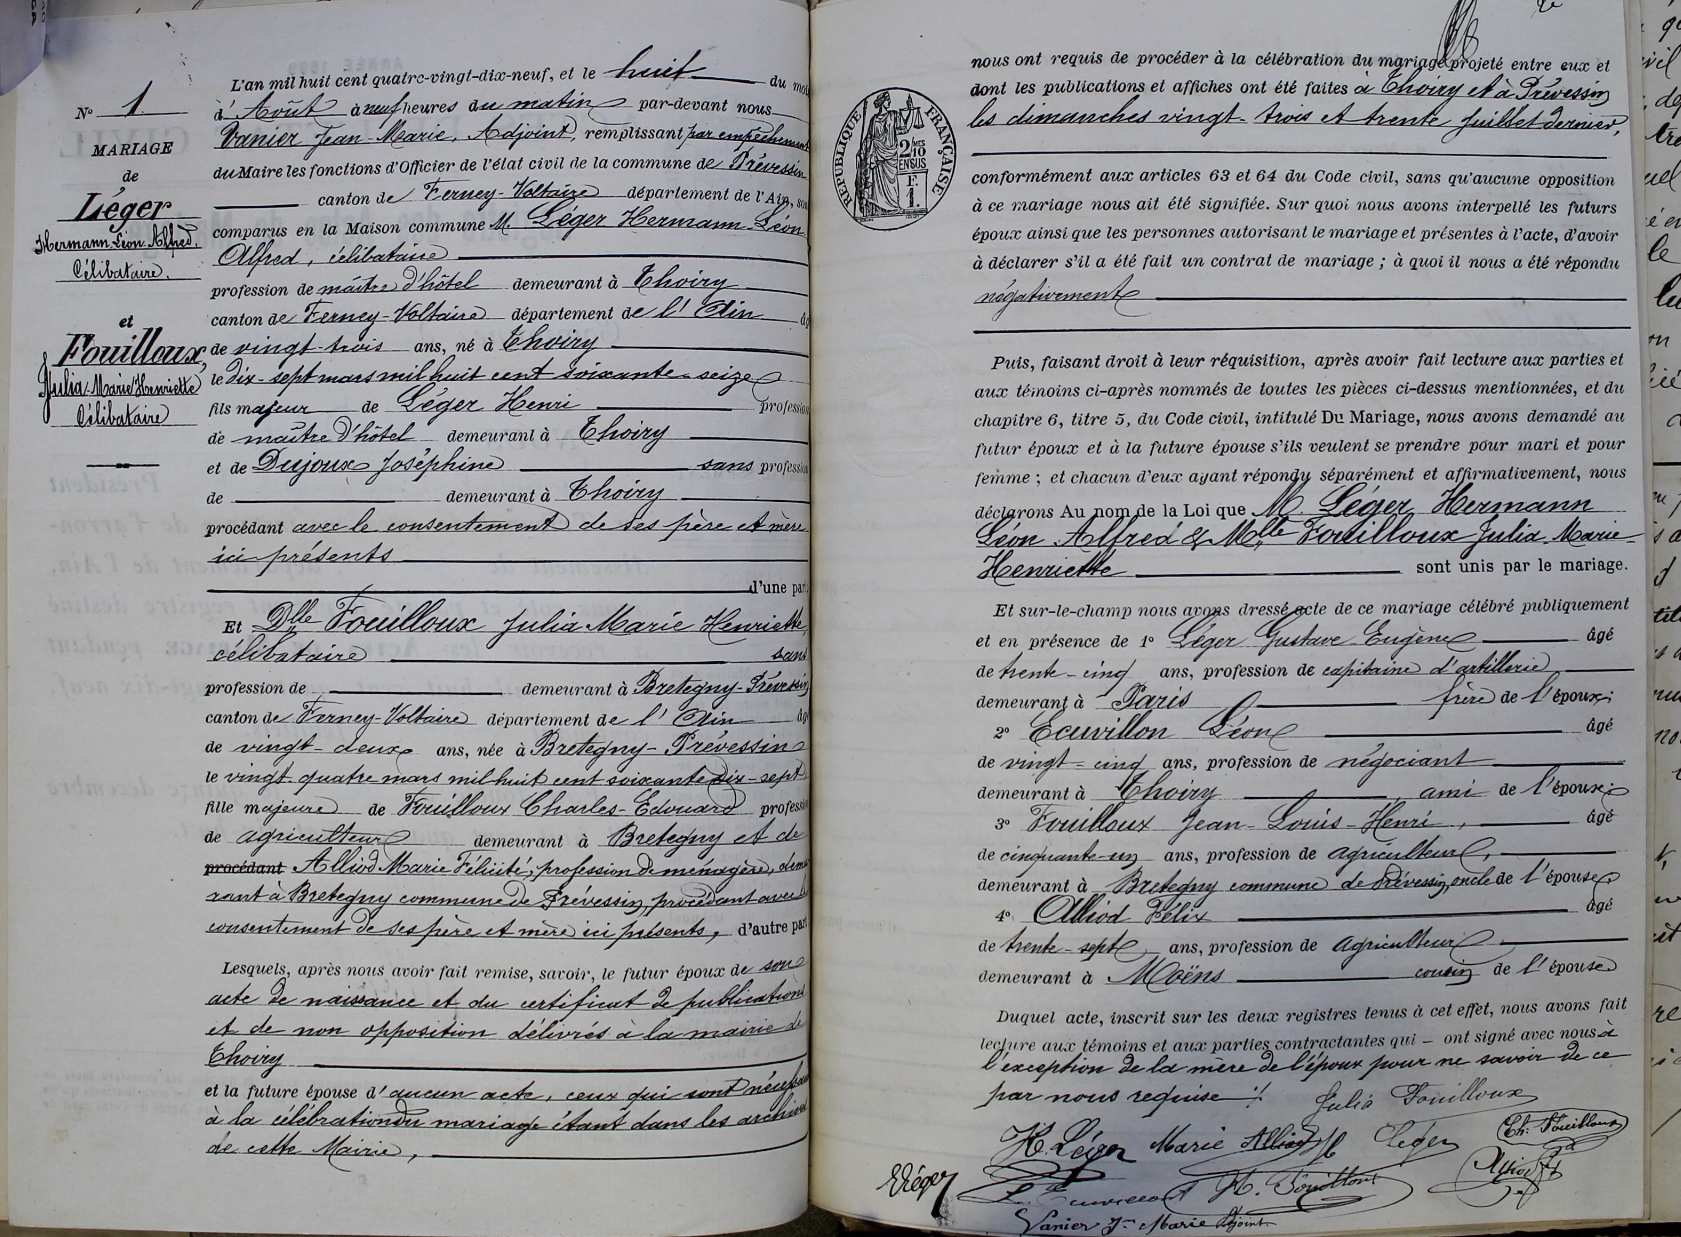 N° 1
MARIAGE
de
Léger
Hermann Léon Alfred.
Célibataire.
et
Fouilloux,
Julia-Marie Henriette
Célibataire
L'an mil huit cent quatre-vingt-dix-neuf, et le huit du mois
d' Août à neuf heures du matin par-devant nous
Vanier Jean-Marie, Adjoint, remplissant par empêchement
du Maire les fonctions d'Officier de l'état civil de la commune de Prévessin
canton de Ferney-Voltaire département de l'Ain, son
comparus en la Maison commune M. Léger Hermann-Léon
Alfred, célibataire
profession de maître d'hôtel demeurant à Thoiry
canton de Ferney-Voltaire département de l'Ain âgé
de vingt-trois ans, né à Thoiry
le dix-sept mars mil huit cent soixante-seize
fils majeur de Léger Henri profession
de maître d'hôtel demeurant à Thoiry
et de Dujoux Joséphine sans profession
de demeurant à Thoiry
procédant avec le consentement de ses père et mère
ici présents
d'une part
Et Dlle Fouilloux Julia Marie Henriette,
célibataire sans
profession de demeurant à Bretegny-Prévessin
canton de Ferney-Voltaire département de l'Ain âgé
de vingt-deux ans, née à Bretegny-Prévessin
le vingt quatre mars mil huit cent soixante dix-sept
fille majeure de Fouilloux Charles-Edouard profession
de agriculteur demeurant à Bretegny et de
procédant Alliod Marie Félicité, profession de ménagère, demeu
rant à Bretegny commune de Prévessin, procédant avec le
consentement de ses père et mère ici présents, d'autre part
Lesquels, après nous avoir fait remise, savoir, le futur époux de son
acte de naissance et du certificat de publications
et de non opposition délivrés à la mairie de
Thoiry
et la future épouse d'aucun acte, ceux qui sont nécessaires
à la célébration du mariage étant dans les archives
de cette Mairie,
RÉPUBLIQUE FRANÇAISE
2/10 MES
EN SUS
F.
1.
nous ont requis de procéder à la célébration du mariage projeté entre eux et
dont les publications et affiches ont été faites à Thoiry et à Prévessin
les dimanches vingt-trois et trente Juillet dernier,
conformément aux articles 63 et 64 du Code civil, sans qu'aucune opposition
à ce mariage nous ait été signifiée. Sur quoi nous avons interpellé les futurs
époux ainsi que les personnes autorisant le mariage et présentes à l'acte, d'avoir
à déclarer s'il a été fait un contrat de mariage ; à quoi il nous a été répondu
négativement
Puis, faisant droit à leur réquisition, après avoir fait lecture aux parties et
aux témoins ci-après nommés de toutes les pièces ci-dessus mentionnées, et du
chapitre 6, titre 5, du Code civil, intitulé Du Mariage, nous avons demandé au
futur époux et à la future épouse s'ils veulent se prendre pour mari et pour
femme ; et chacun d'eux ayant répondu séparément et affirmativement, nous
déclarons Au nom de la Loi que M. Léger Hermann
Léon Alfred & Mlle Fouilloux Julia-Marie-
Henriette sont unis par le mariage.
Et sur-le-champ nous avons dressé acte de ce mariage célébré publiquement
et en présence de 1° Léger Gustave Eugène âgé
de trente-cinq ans, profession de capitaine d'artillerie
demeurant à Paris frère de l'époux;
2° Ecuvillon Léon âgé
de vingt-cinq ans, profession de négociant
demeurant à Thoiry ami de l'époux;
3° Fouilloux Jean-Louis-Henri, âgé
de cinquante-un ans, profession de agriculteur,
demeurant à Bretegny commune de Prévessin, oncle de l'épouse;
4° Alliod Félix âgé
de trente-sept ans, profession de agriculteur
demeurant à Moëns cousin de l'épouse
Duquel acte, inscrit sur les deux registres tenus à cet effet, nous avons fait
lecture aux témoins et aux parties contractantes qui - ont signé avec nous à
l'exception de la mère de l'époux pour ne savoir de ce
par nous requise ./.
Julia Fouilloux
H. Léger Marie Alliod H Léger Ch. Fouilloux
Léger Ecuvillon H. Fouilloux Alliod
Vanier J- Marie Adjoint